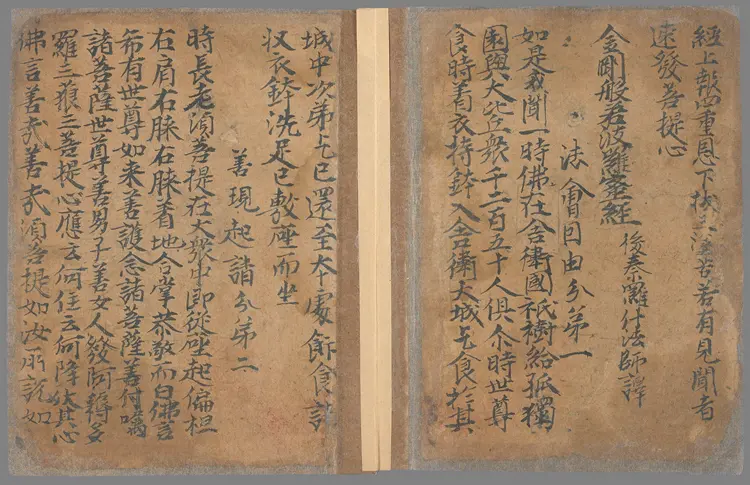 經上報四重恩下拔三塗苦若有見聞者
速發菩提心
金剛般若波羅蜜經
後秦羅什法師譯
法會因由分第一
如是我聞一時佛在舍衛國祇樹給孤獨
園與大比丘衆千二百五十人俱尒時世尊
食時着衣持鉢入舍衛大城乞食於其
城中次第乞已還至本處飯食訖
収衣鉢洗足已敷座而坐
善現起請分第二
時長老須菩提在大衆中即從座起偏袒
右肩右膝右膝着地合掌恭敬而白佛言
希有世尊如来善護念諸菩薩善付囑
諸菩薩世尊善男子善女人發阿耨多
羅三藐三菩提心應云何住云何降伏其心
佛言善哉善哉須菩提如汝所說如